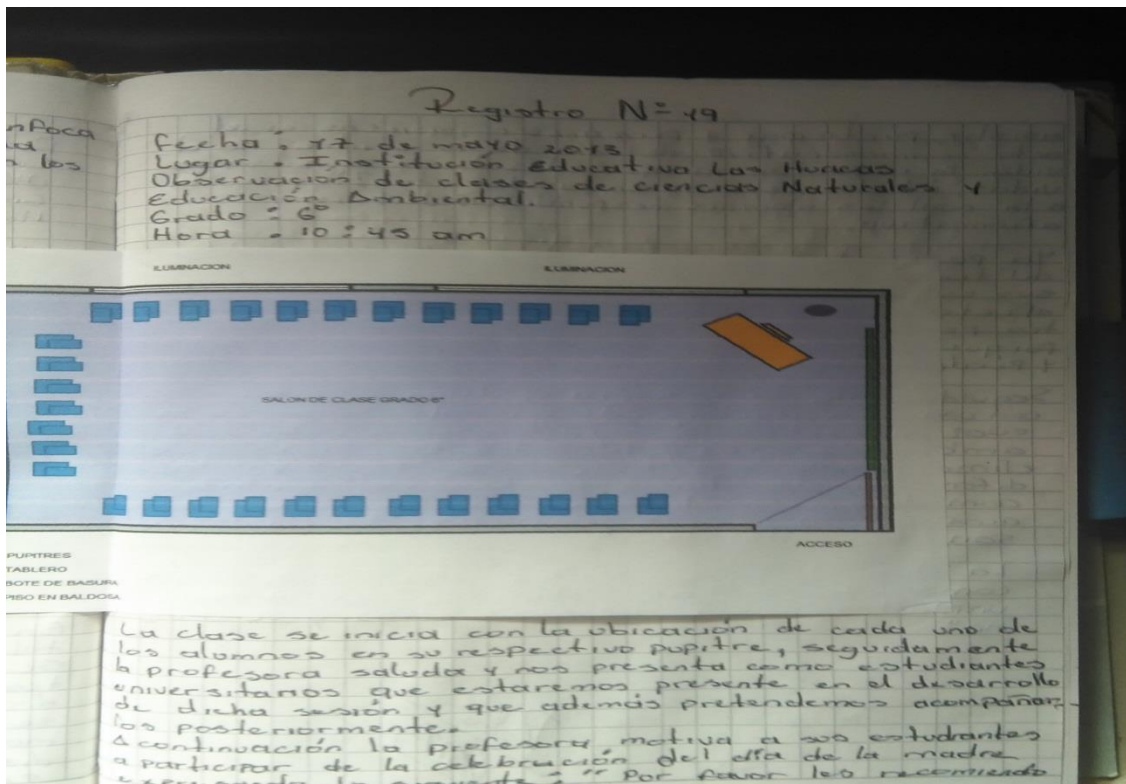 nfoca
los
Registro Nº 19
fecha : 17 de mayo 2013
Lugar : Institución Educativa Las Huacas
Observación de clases de ciencias Naturales y
Educación Ambiental.
Grado : 6°
Hora : 10:45 am
ILUMINACION ILUMINACION
SALON DE CLASE GRADO 6°
ACCESO
PUPITRES
TABLERO
BOTE DE BASURA
PISO EN BALDOSA
La clase se inicia con la ubicación de cada uno de
los alumnos en su respectivo pupitre, seguidamente
la profesora saluda y nos presenta como estudiantes
universitarios que estaremos presente en el desarrollo
de dicha sesión y que además pretendemos acompañar-
los posteriormente.
A continuación la profesora motiva a sus estudiantes
a participar de la celebración del día de la madre
: " Por favor les recomiendo